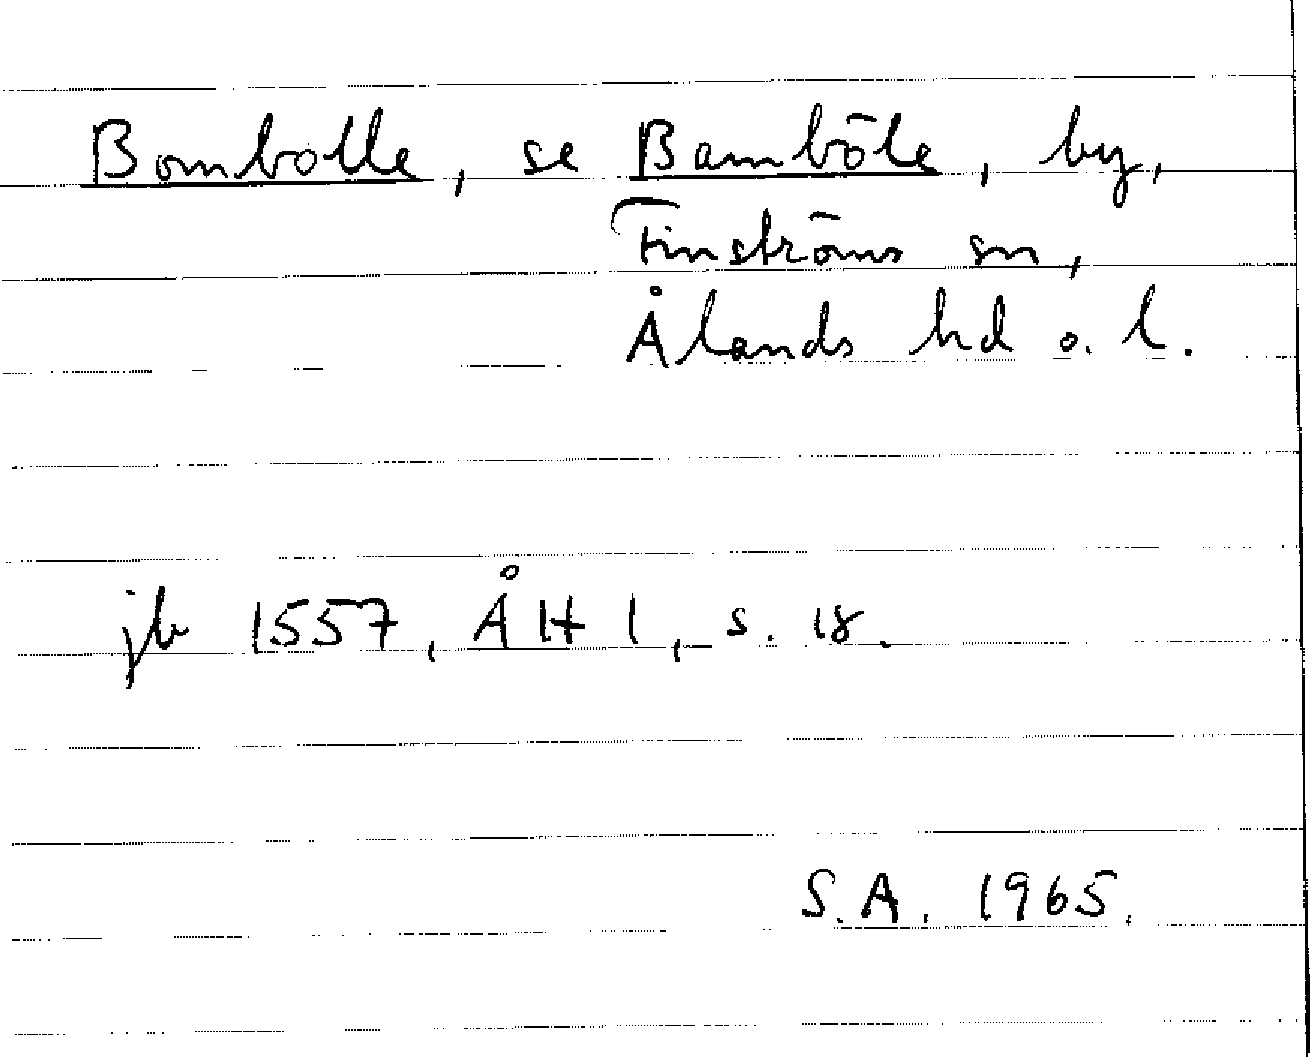 Bombolle, se Bamböle, by,
Finströms sn,
Ålands hd o. l.
jb 1557, ÅH I, s. 18.
S.A. 1965.